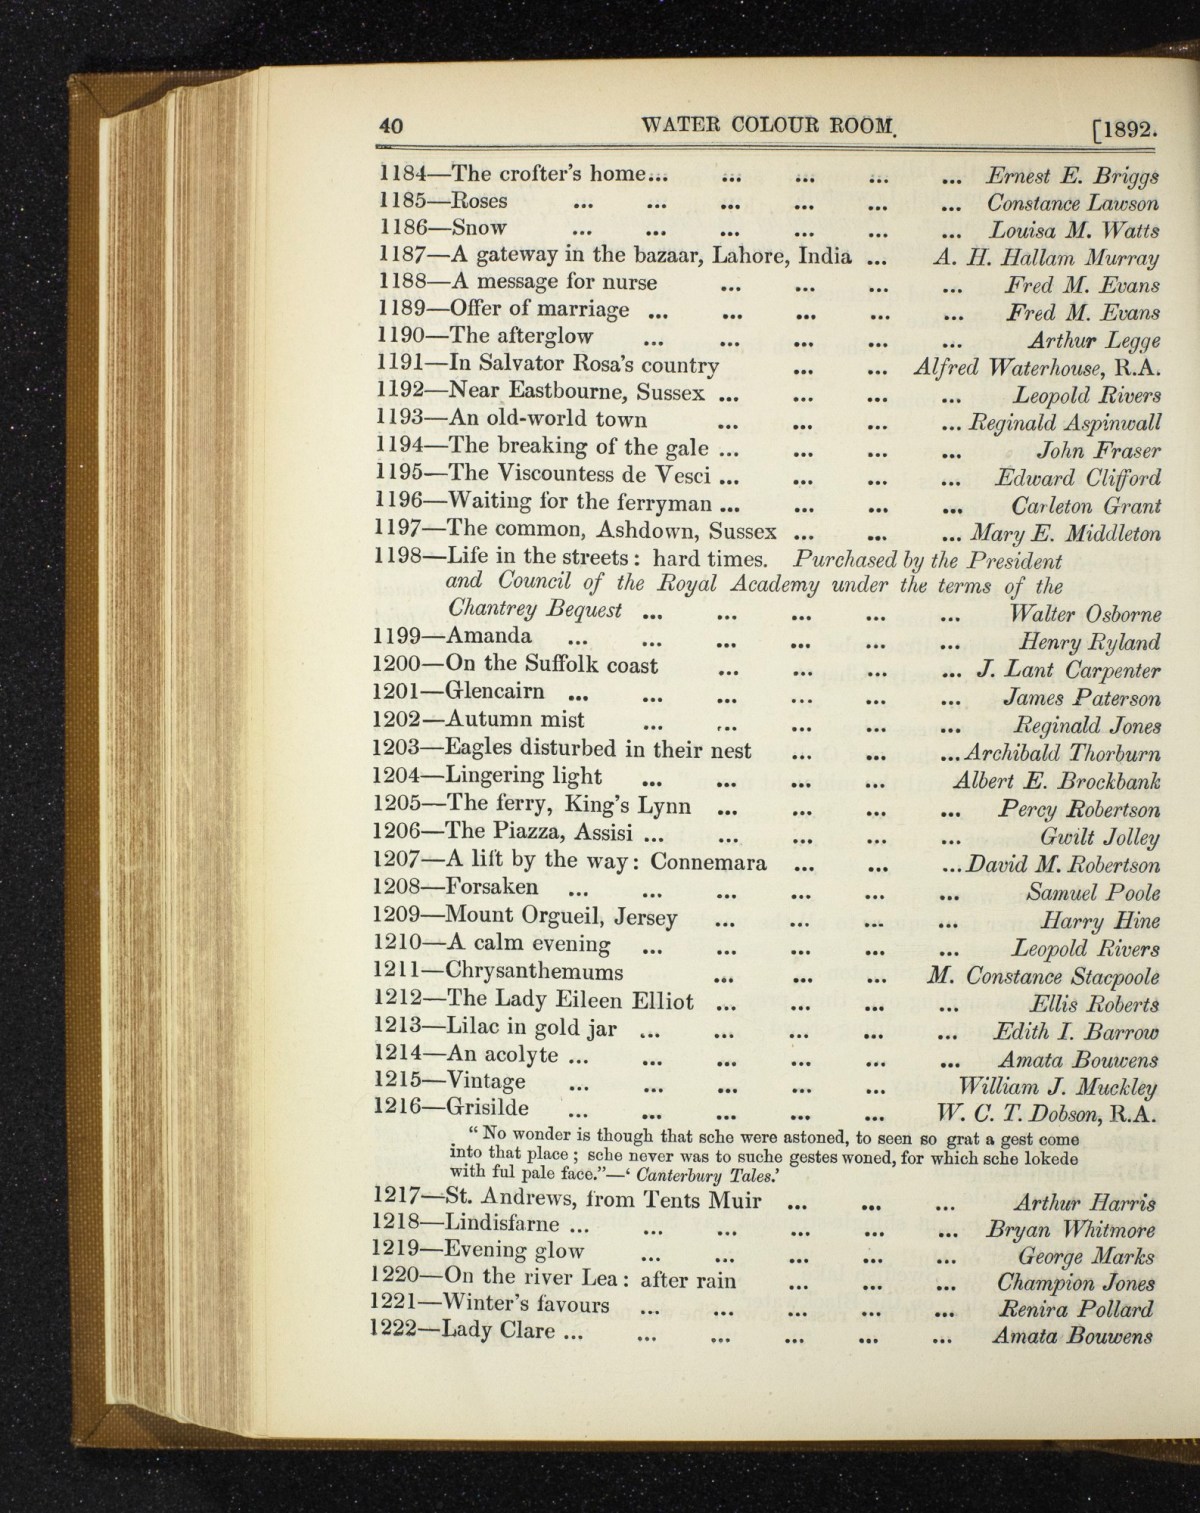 40 WATER COLOUR ROOM. [1892.
1184—The crofter's home... ... ... ... ... Ernest E. Briggs
1185—Roses ... ... ... ... ... ... Constance Lawson
1186—Snow ... ... ... ... ... ... Louisa M. Watts
1187—A gateway in the bazaar, Lahore, India ... A. H. Hallam Murray
1188—A message for nurse ... ... ... ... Fred M. Evans
1189—Offer of marriage ... ... ... ... ... Fred M. Evans
1190—The afterglow ... ... ... ... ... Arthur Legge
1191—In Salvator Rosa's country ... ... Alfred Waterhouse, R.A.
1192—Near Eastbourne, Sussex ... ... ... ... Leopold Rivers
1193—An old-world town ... ... ... ... Reginald Aspinwall
1194—The breaking of the gale ... ... ... ... John Fraser
1195—The Viscountess de Vesci ... ... ... ... Edward Clifford
1196—Waiting for the ferryman ... ... ... ... Carleton Grant
1197—The common, Ashdown, Sussex ... ... ... Mary E. Middleton
1198—Life in the streets: hard times. Purchased by the President
and Council of the Royal Academy under the terms of the
Chantrey Bequest ... ... ... ... ... Walter Osborne
1199—Amanda ... ... ... ... ... ... Henry Ryland
1200—On the Suffolk coast ... ... ... ... J. Lant Carpenter
1201—Glencairn ... ... ... ... ... ... James Paterson
1202—Autumn mist ... ... ... ... ... Reginald Jones
1203—Eagles disturbed in their nest ... ... ... Archibald Thorburn
1204—Lingering light ... ... ... ... Albert E. Brockbank
1205—The ferry, King's Lynn ... ... ... ... Percy Robertson
1206—The Piazza, Assisi ... ... ... ... ... Gwilt Jolley
1207—A lift by the way: Connemara ... ... ... David M. Robertson
1208—Forsaken ... ... ... ... ... ... Samuel Poole
1209—Mount Orgueil, Jersey ... ... ... ... Harry Hine
1210—A calm evening ... ... ... ... ... Leopold Rivers
1211—Chrysanthemums ... ... ... M. Constance Stacpoole
1212—The Lady Eileen Elliot ... ... ... ... Ellis Roberts
1213—Lilac in gold jar ... ... ... ... ... Edith I. Barrow
1214—An acolyte ... ... ... ... ... ... Amata Bouwens
1215—Vintage ... ... ... ... ... William J. Muckley
1216—Grisilde ... ... ... ... ... W. C. T. Dobson, R.A.
"No wonder is though that sche were astoned, to seen so grat a gest come
into that place; sche never was to suche gestes woned, for which sche lokede
with ful pale face."—'Canterbury Tales.'
1217—St. Andrews, from Tents Muir ... ... ... Arthur Harris
1218—Lindisfarne ... ... ... ... ... ... Bryan Whitmore
1219—Evening glow ... ... ... ... ... George Marks
1220—On the river Lea: after rain ... ... ... Champion Jones
1221—Winter's favours ... ... ... ... ... Renira Pollard
1222—Lady Clare ... ... ... ... ... ... Amata Bouwens